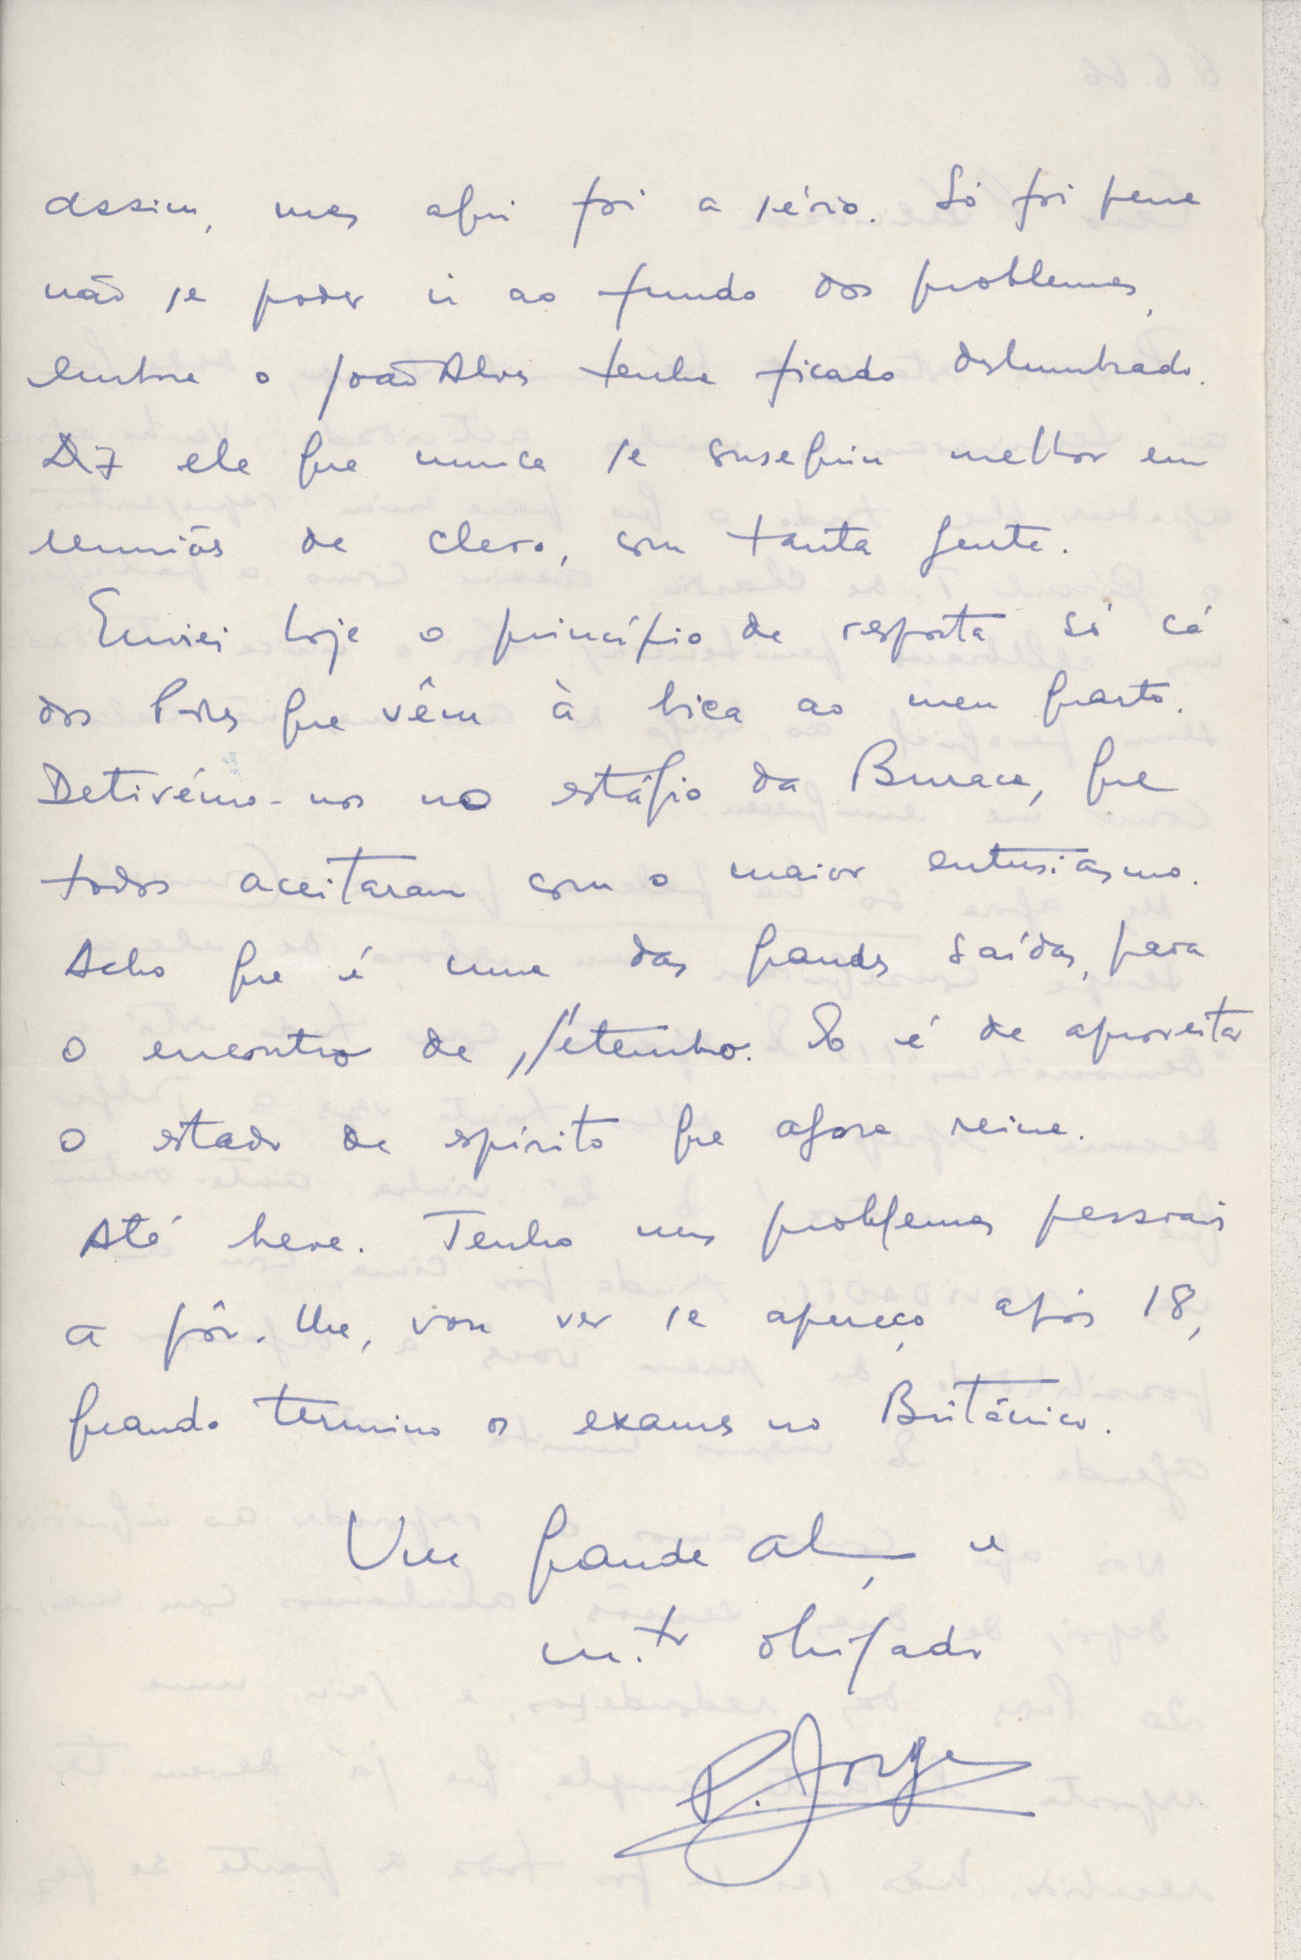 assim, mas aqui foi a sério. Só foi pena
não se poder ir ao fundo dos problemas,
embora o João Alves tenha ficado deslumbrado.
Diz ele que nunca se conseguiu melhor em
reuniões de clero, com tanta gente.
Enviei hoje o princípio de resposta só cá
dos Padres que vêm à bica ao meu quarto.
Detivémo-nos no estágio da Buraca, que
todos aceitaram com o maior entusiásmo.
Acho que é uma das grandes saídas, para
o encontro de Setembro. Só é de aproveitar
o estado de espírito que agora reina.
Até breve. Tenho uns problemas pessoais
a pôr-lhe, vou ver se apareço após 18,
quando termino os exames no Britânico.
Um grande ab. e
m.to obrigado
P. Jorge